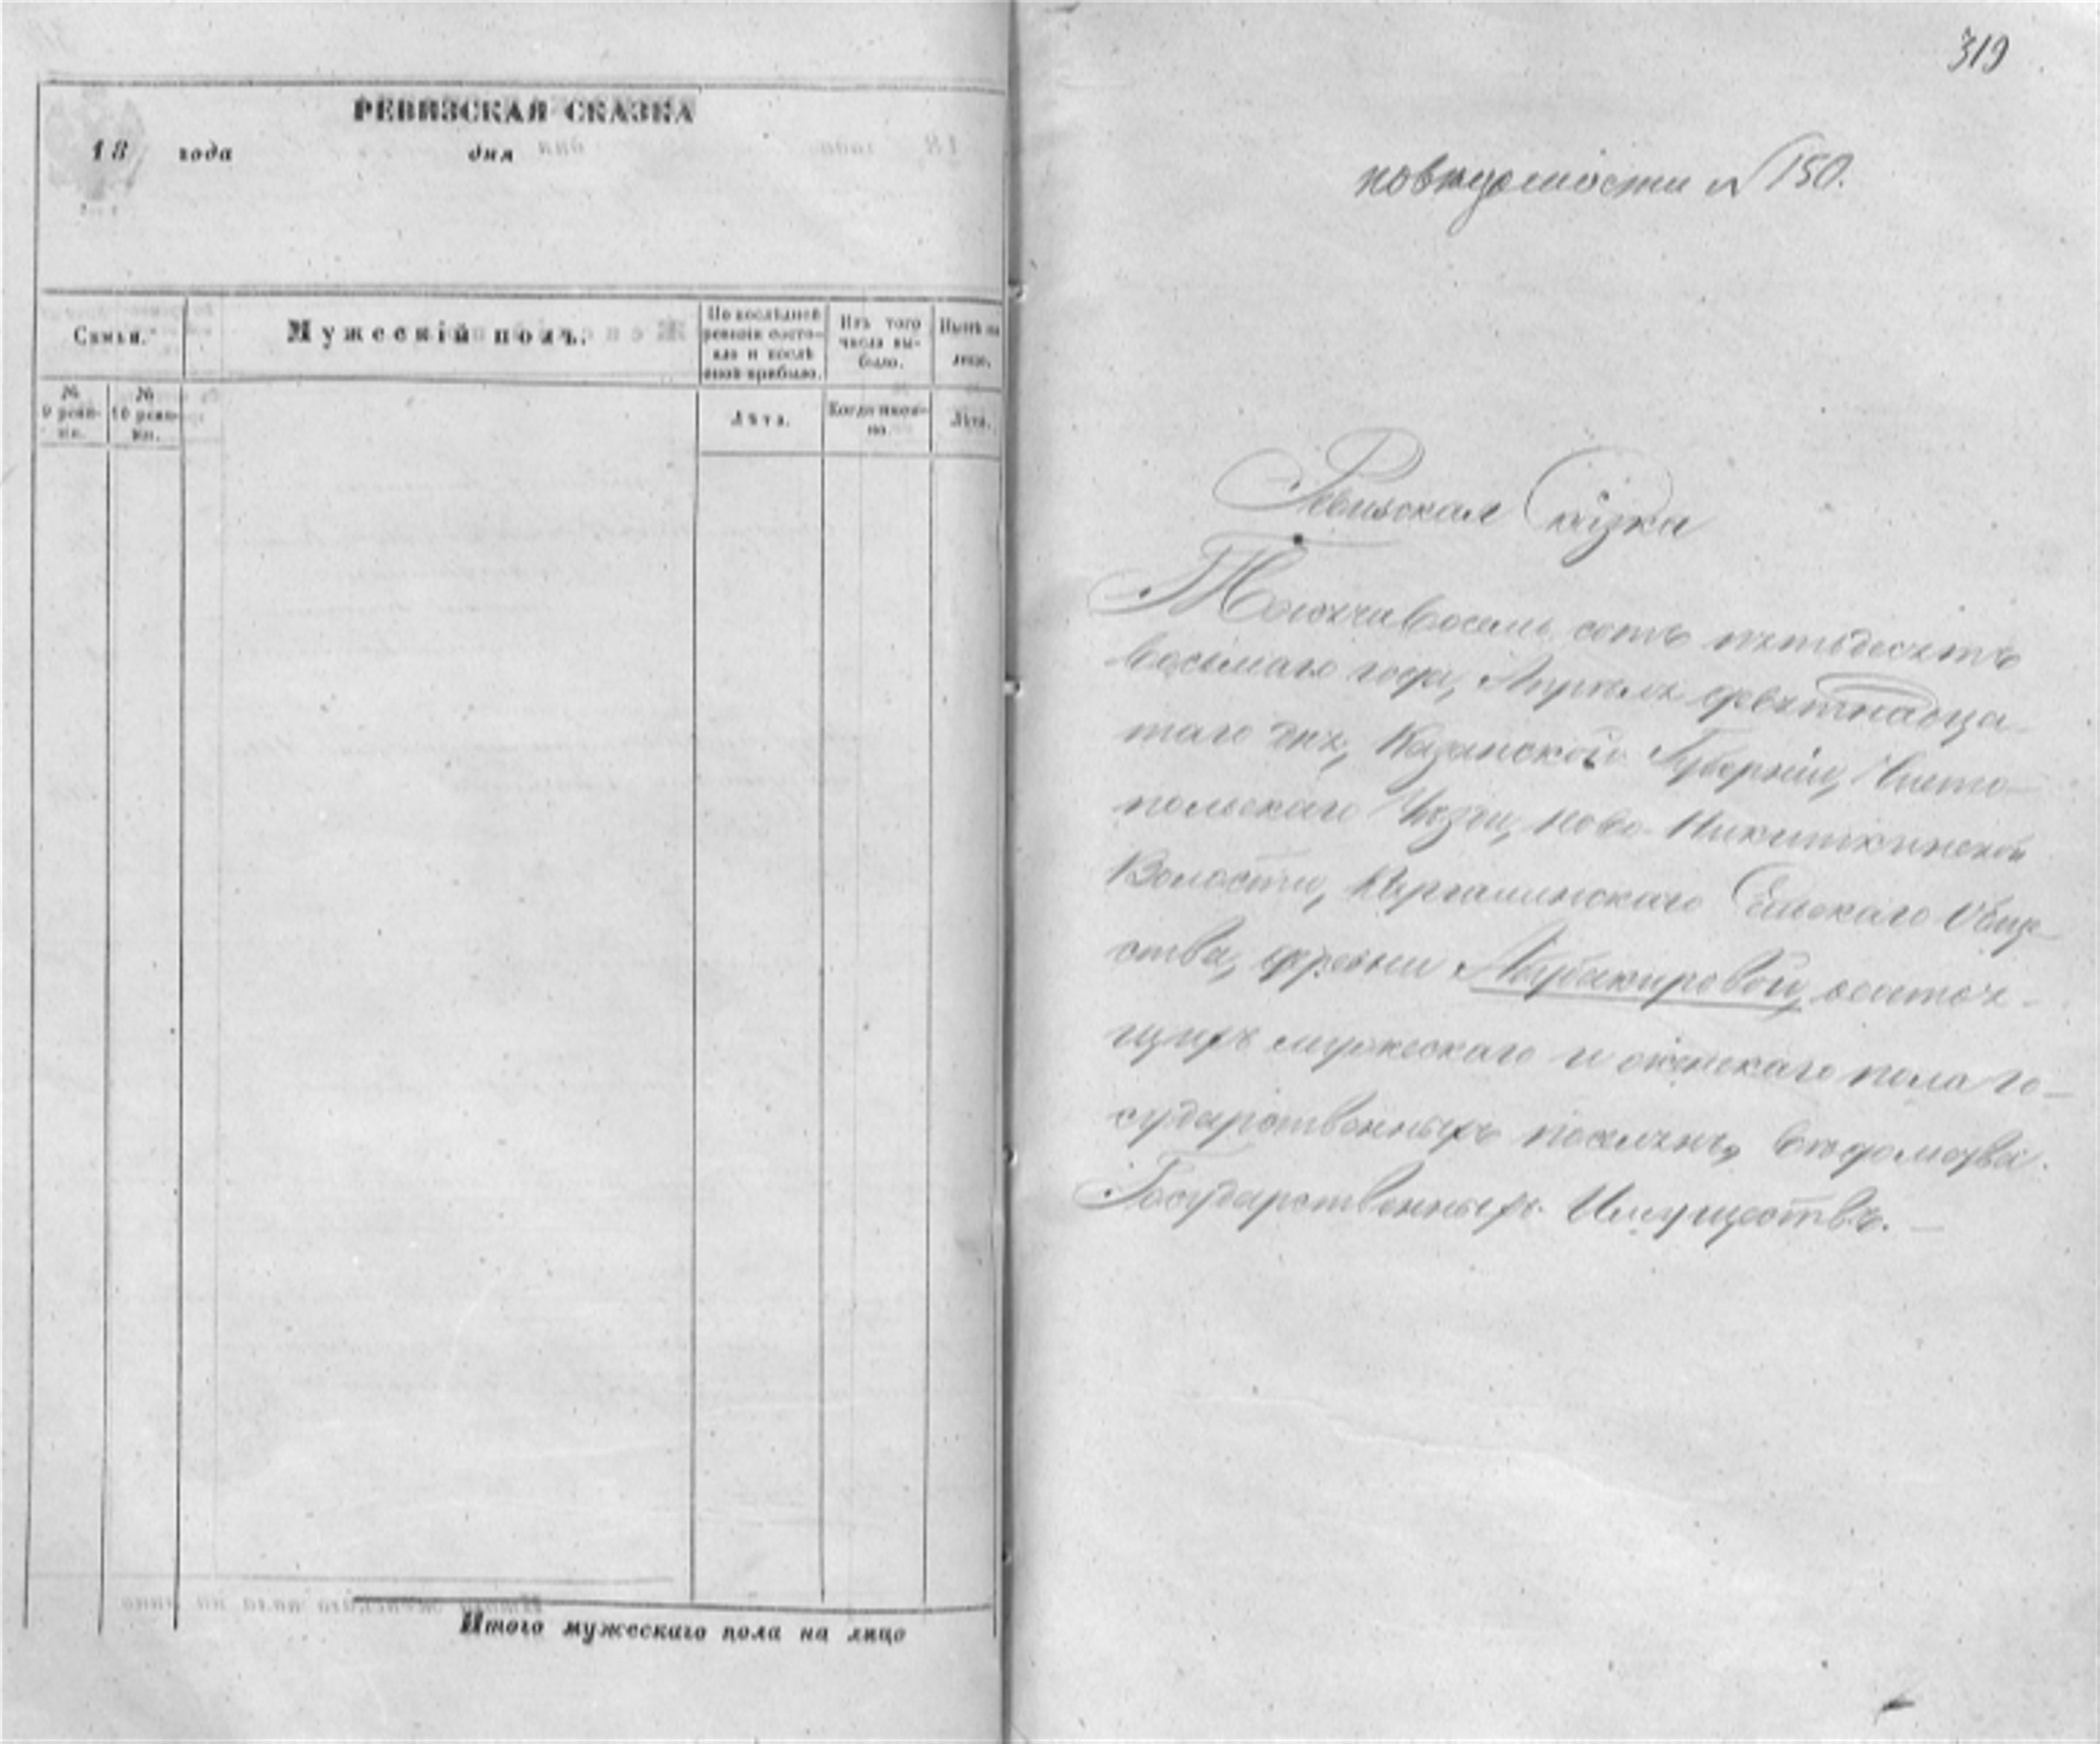 РЕВИЗСКАЯ СКАЗКА
18 года дня
Семьи.
Мужескій полъ.
По послѣдней ревизіи состояло и послѣ оной прибыло.
Изъ того числа выбыло.
Нынѣ на лицо.
№ 9 реви-зіи.
№ 10 реви-зіи.
Лѣта.
Когда имен-но.
Лѣта.
Итого мужескаго пола на лицо
319
№ 150.
Ревизская Сказка
Тысяча восемь сотъ пятьдесятъ
восьмаго года, Апрѣля девятнадца
таго дня, Казанской Губерніи, Чисто-
польскаго Уѣзда, Ново-Никиткинской
Волости, Сельскаго Обще-
ства, деревни Абубакировой, состоя-
щихъ мужескаго и женскаго пола го-
сударственныхъ поселянъ, вѣдомства
Государственныхъ Имуществъ. —